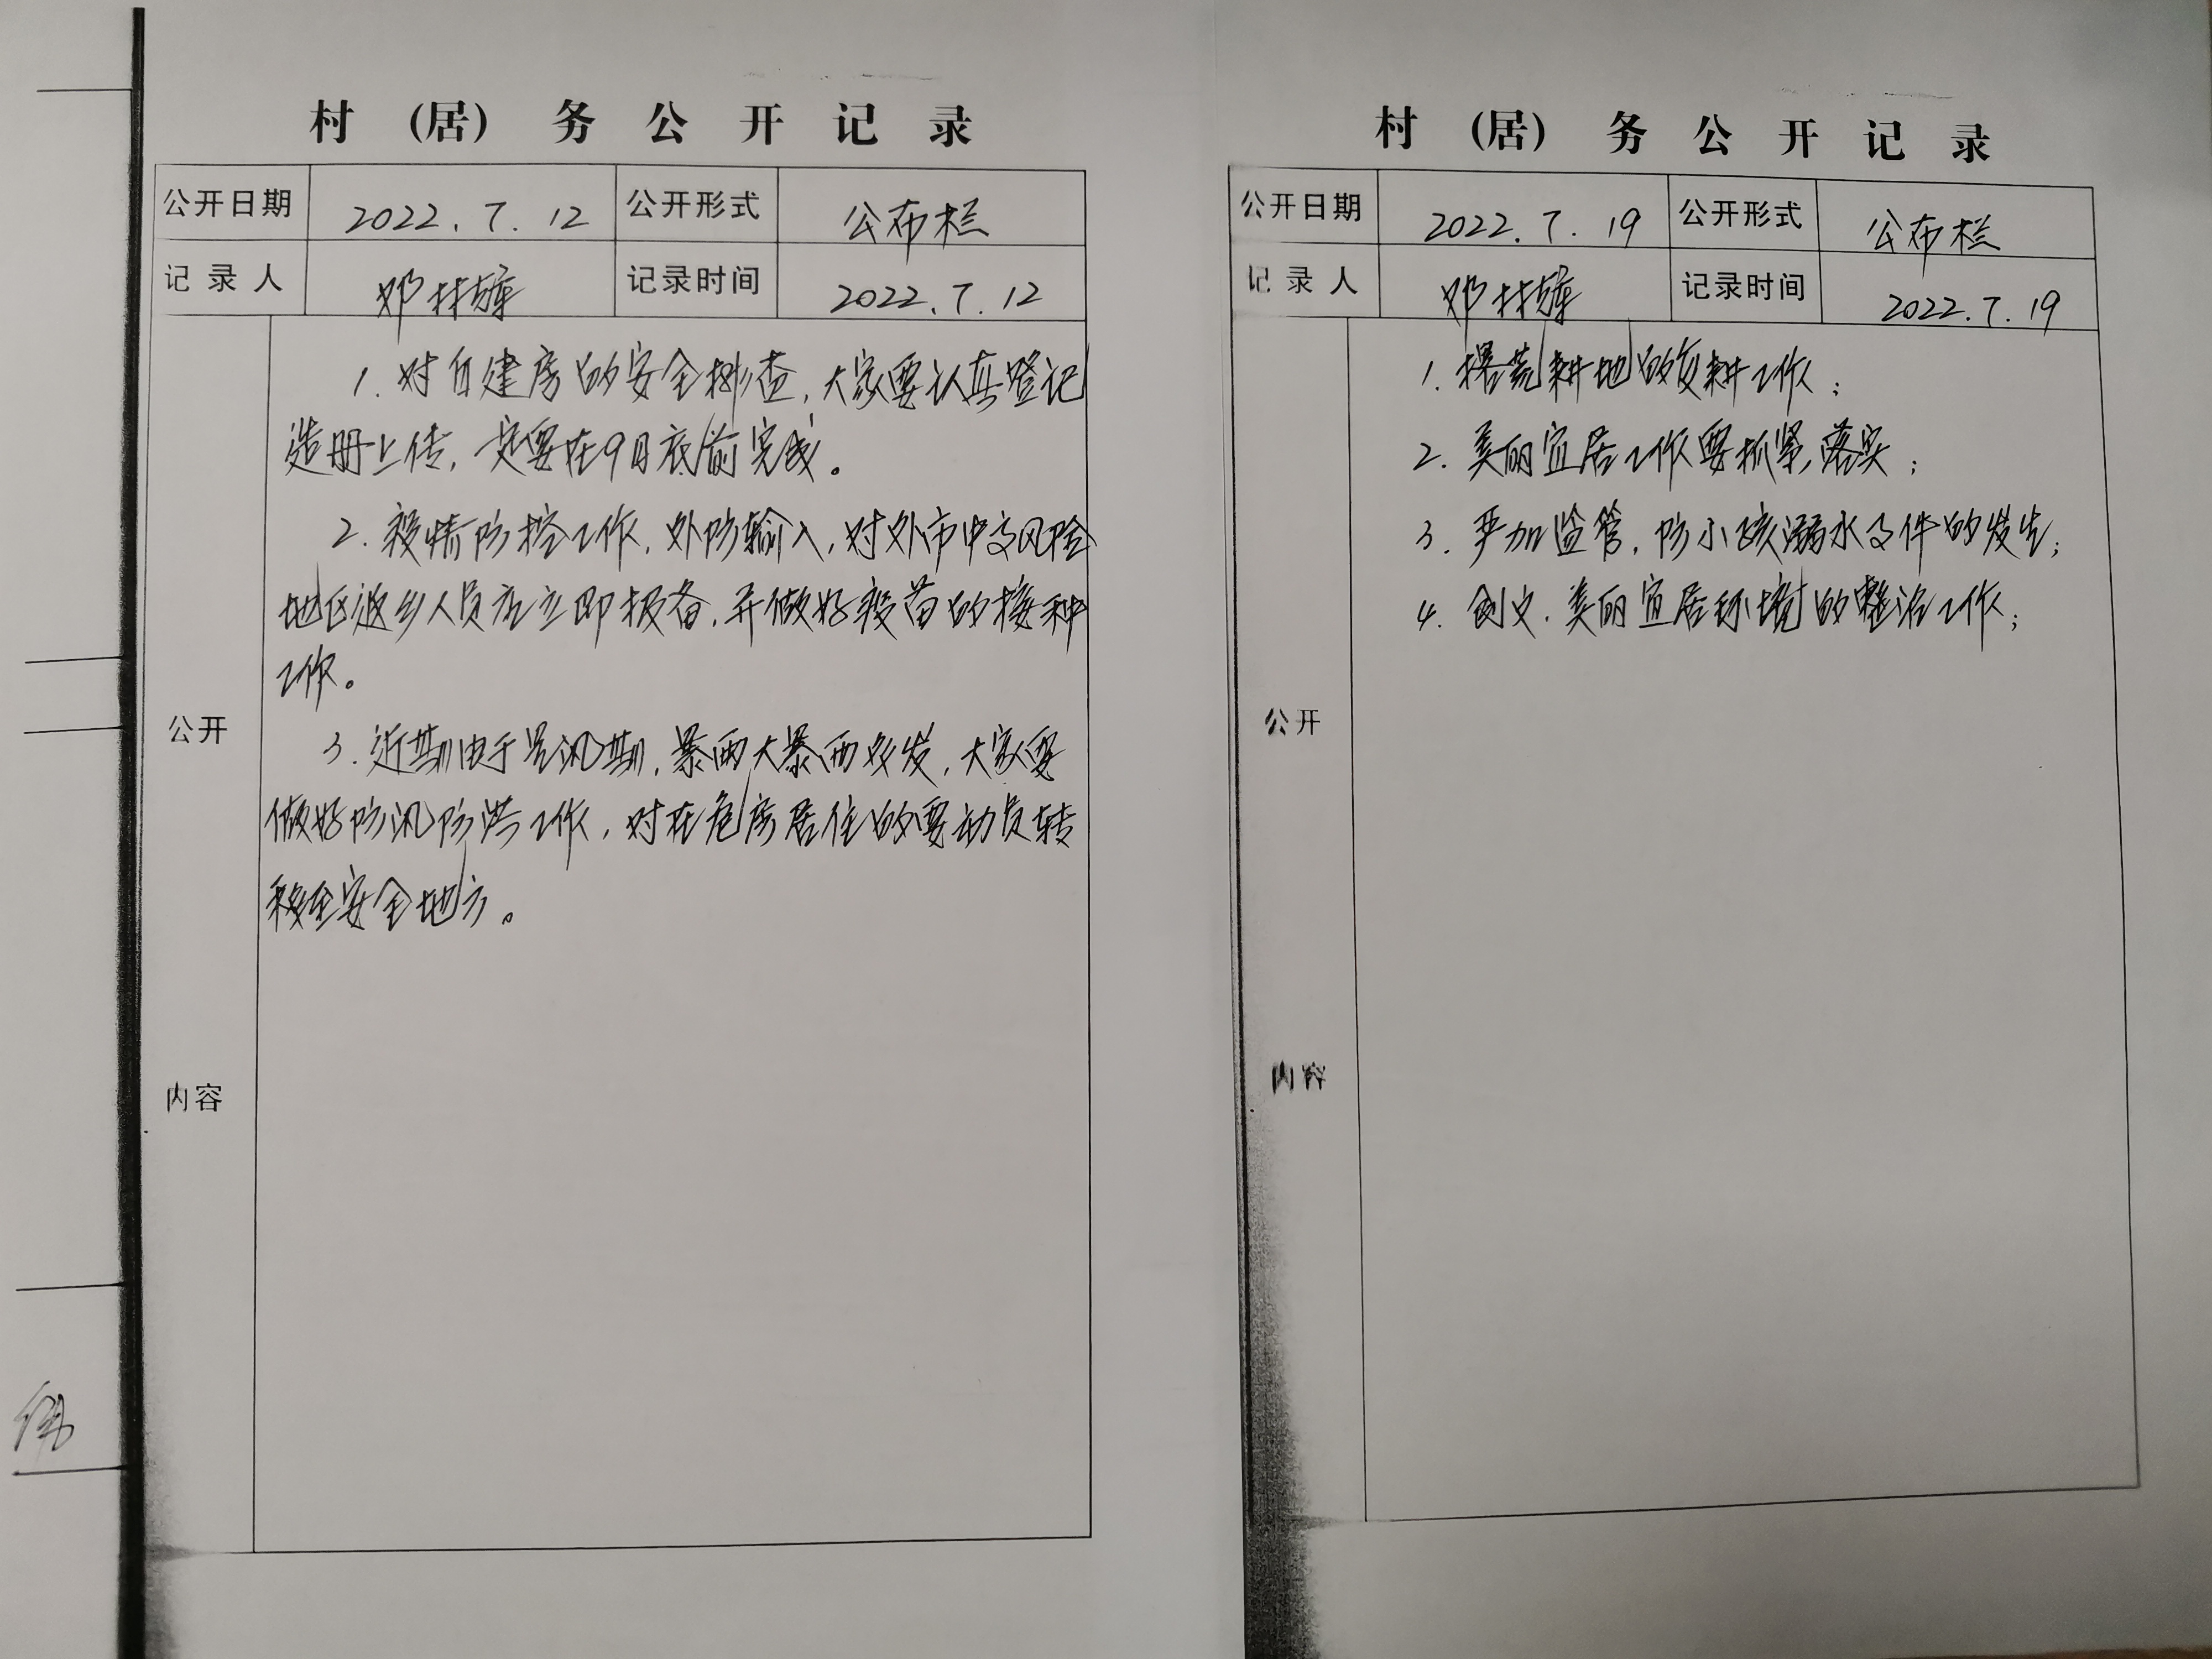 村（居）务公开记录
公开日期 2022.7.12 公开形式 公布栏
记录人 邓 记录时间 2022.7.12
1.对自建房的安全排查,大家要认真登记
造册上传,一定要在9月底前完成。
2.疫情防控工作,外防输入,对外市中高风险
地区返乡人员应立即报备,并做好疫苗的接种
工作。
3.近期由于是汛期,暴雨大暴雨多发,大家要
做好防汛防洪工作,对在危房居住的要动员转
移至安全地方。
公开
内容
村（居）务公开记录
公开日期 2022.7.19 公开形式 公布栏
记录人 邓 记录时间 2022.7.19
1.撂荒耕地的复耕工作;
2.美丽宜居工作要抓紧,落实;
3.严加监管,防小孩溺水事件的发生;
4.创文.美丽宜居环境的整治工作;
公开
内容